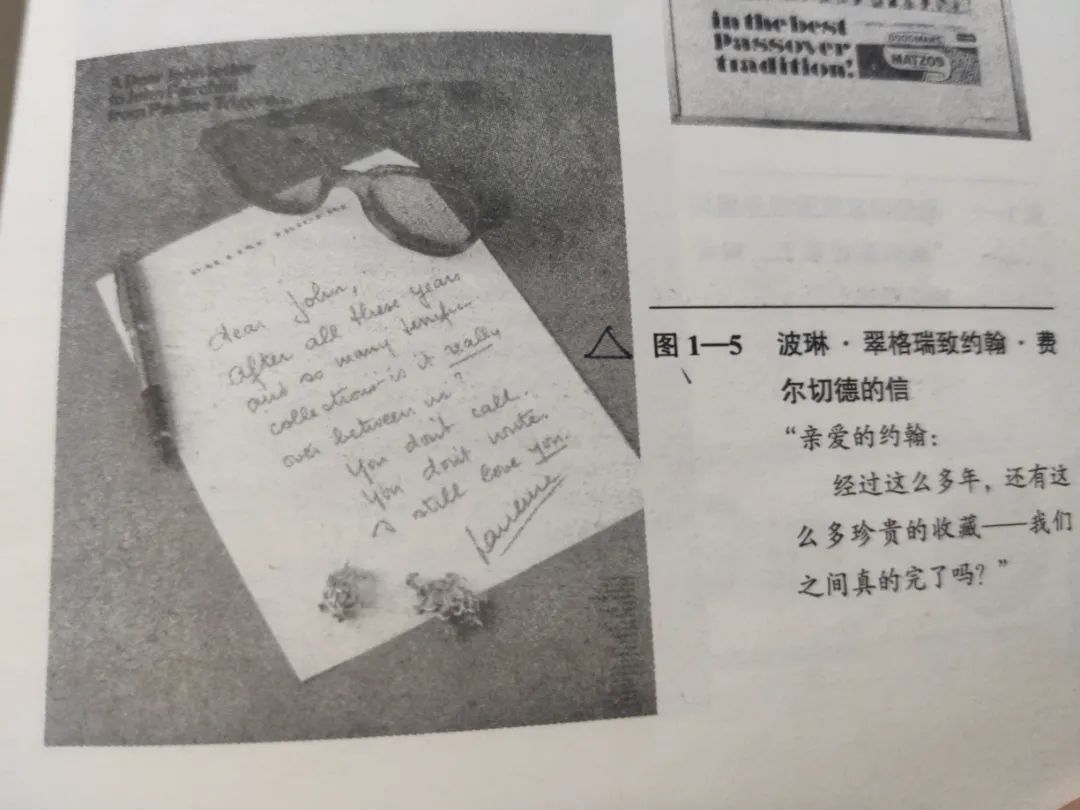 in the best
Passover
tradition!
GOODMAN'S
MATZOS
A Dear John letter
to John Fairchild
from Pauline Trigere
PAULINE TRIGERE
dear John,
after all these years
and so many terrific
collections is it really
over between us?
You don't call.
You don't write.
I still love you.
Pauline
图1—5 波琳·翠格瑞致约翰·费
尔切德的信
“亲爱的约翰：
经过这么多年，还有这
么多珍贵的收藏——我们
之间真的完了吗？”